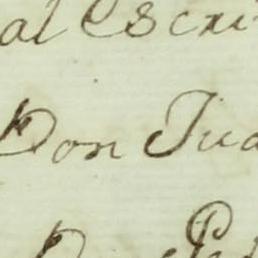 al Escri
Don Jua